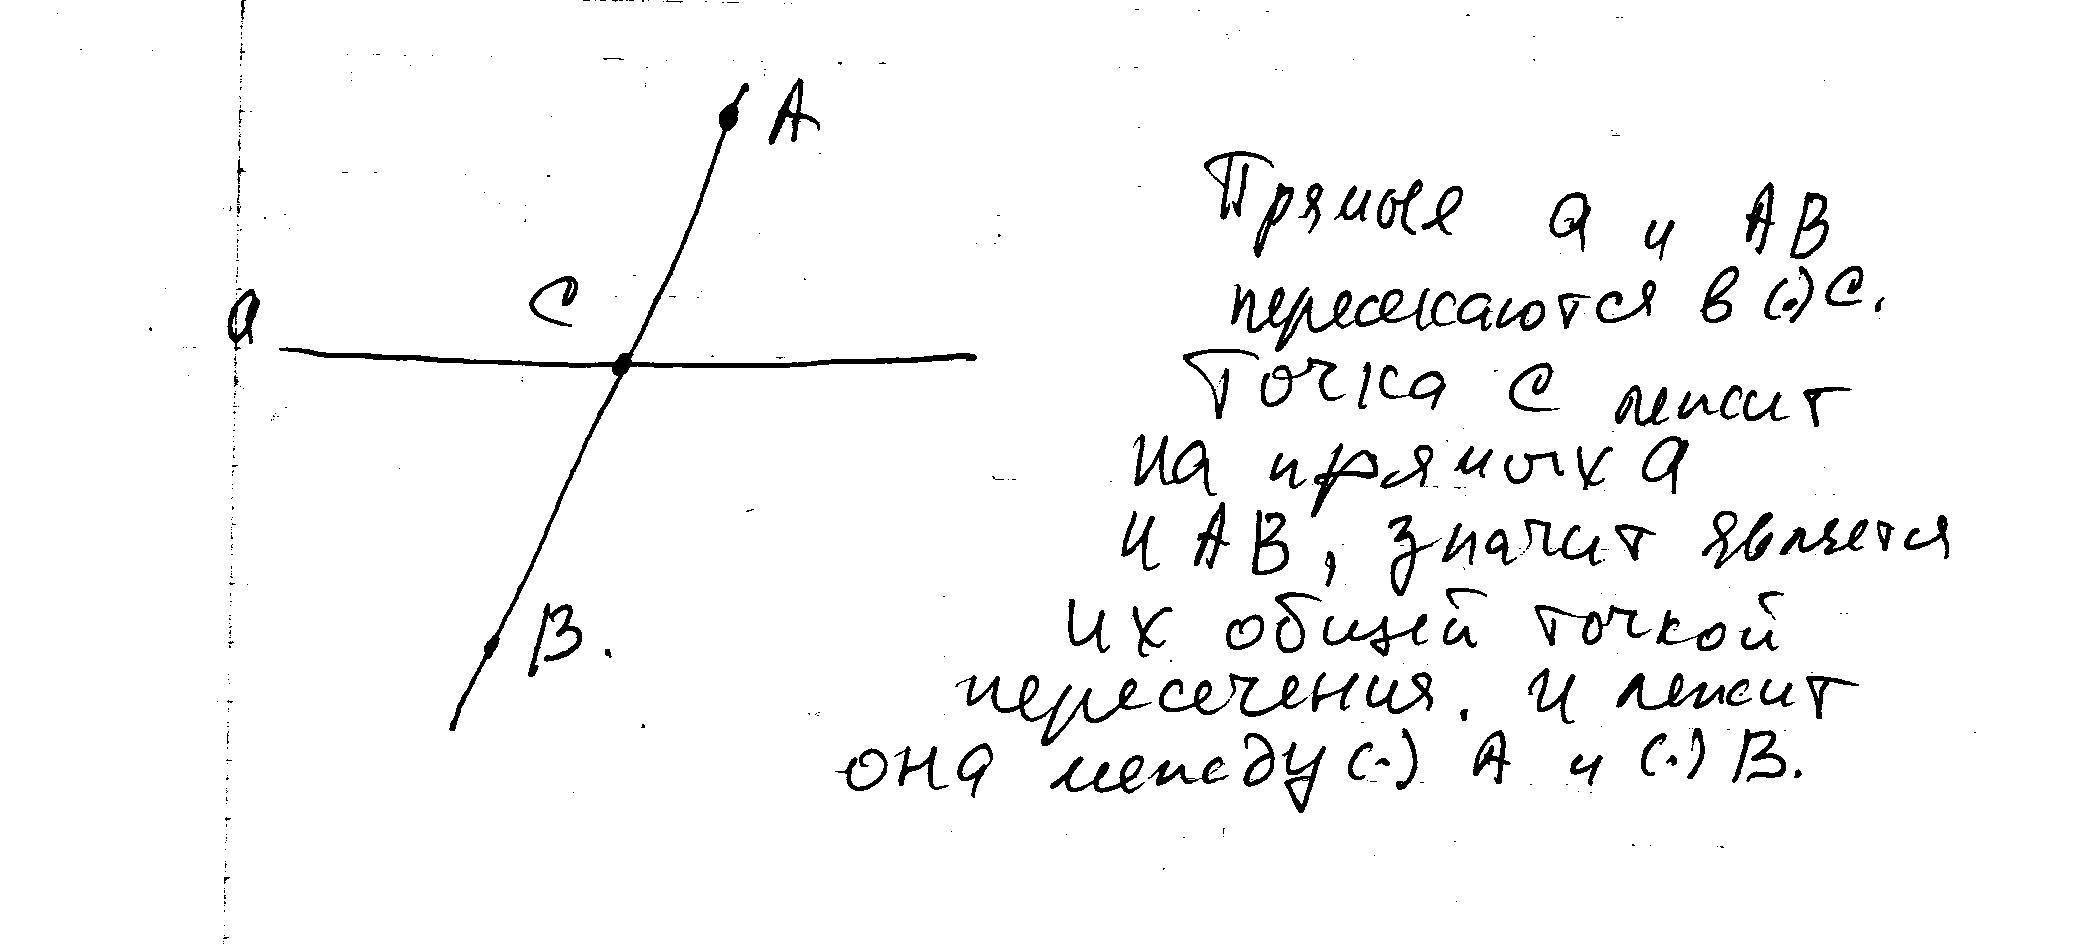 A
Прямые a и AB
пересекаются в (.) C.
a
C
Точка C лежит
на прямых a
и AB, значит является
B.
их общей точкой
пересечения. И лежит
она между (.) A и (.) B.